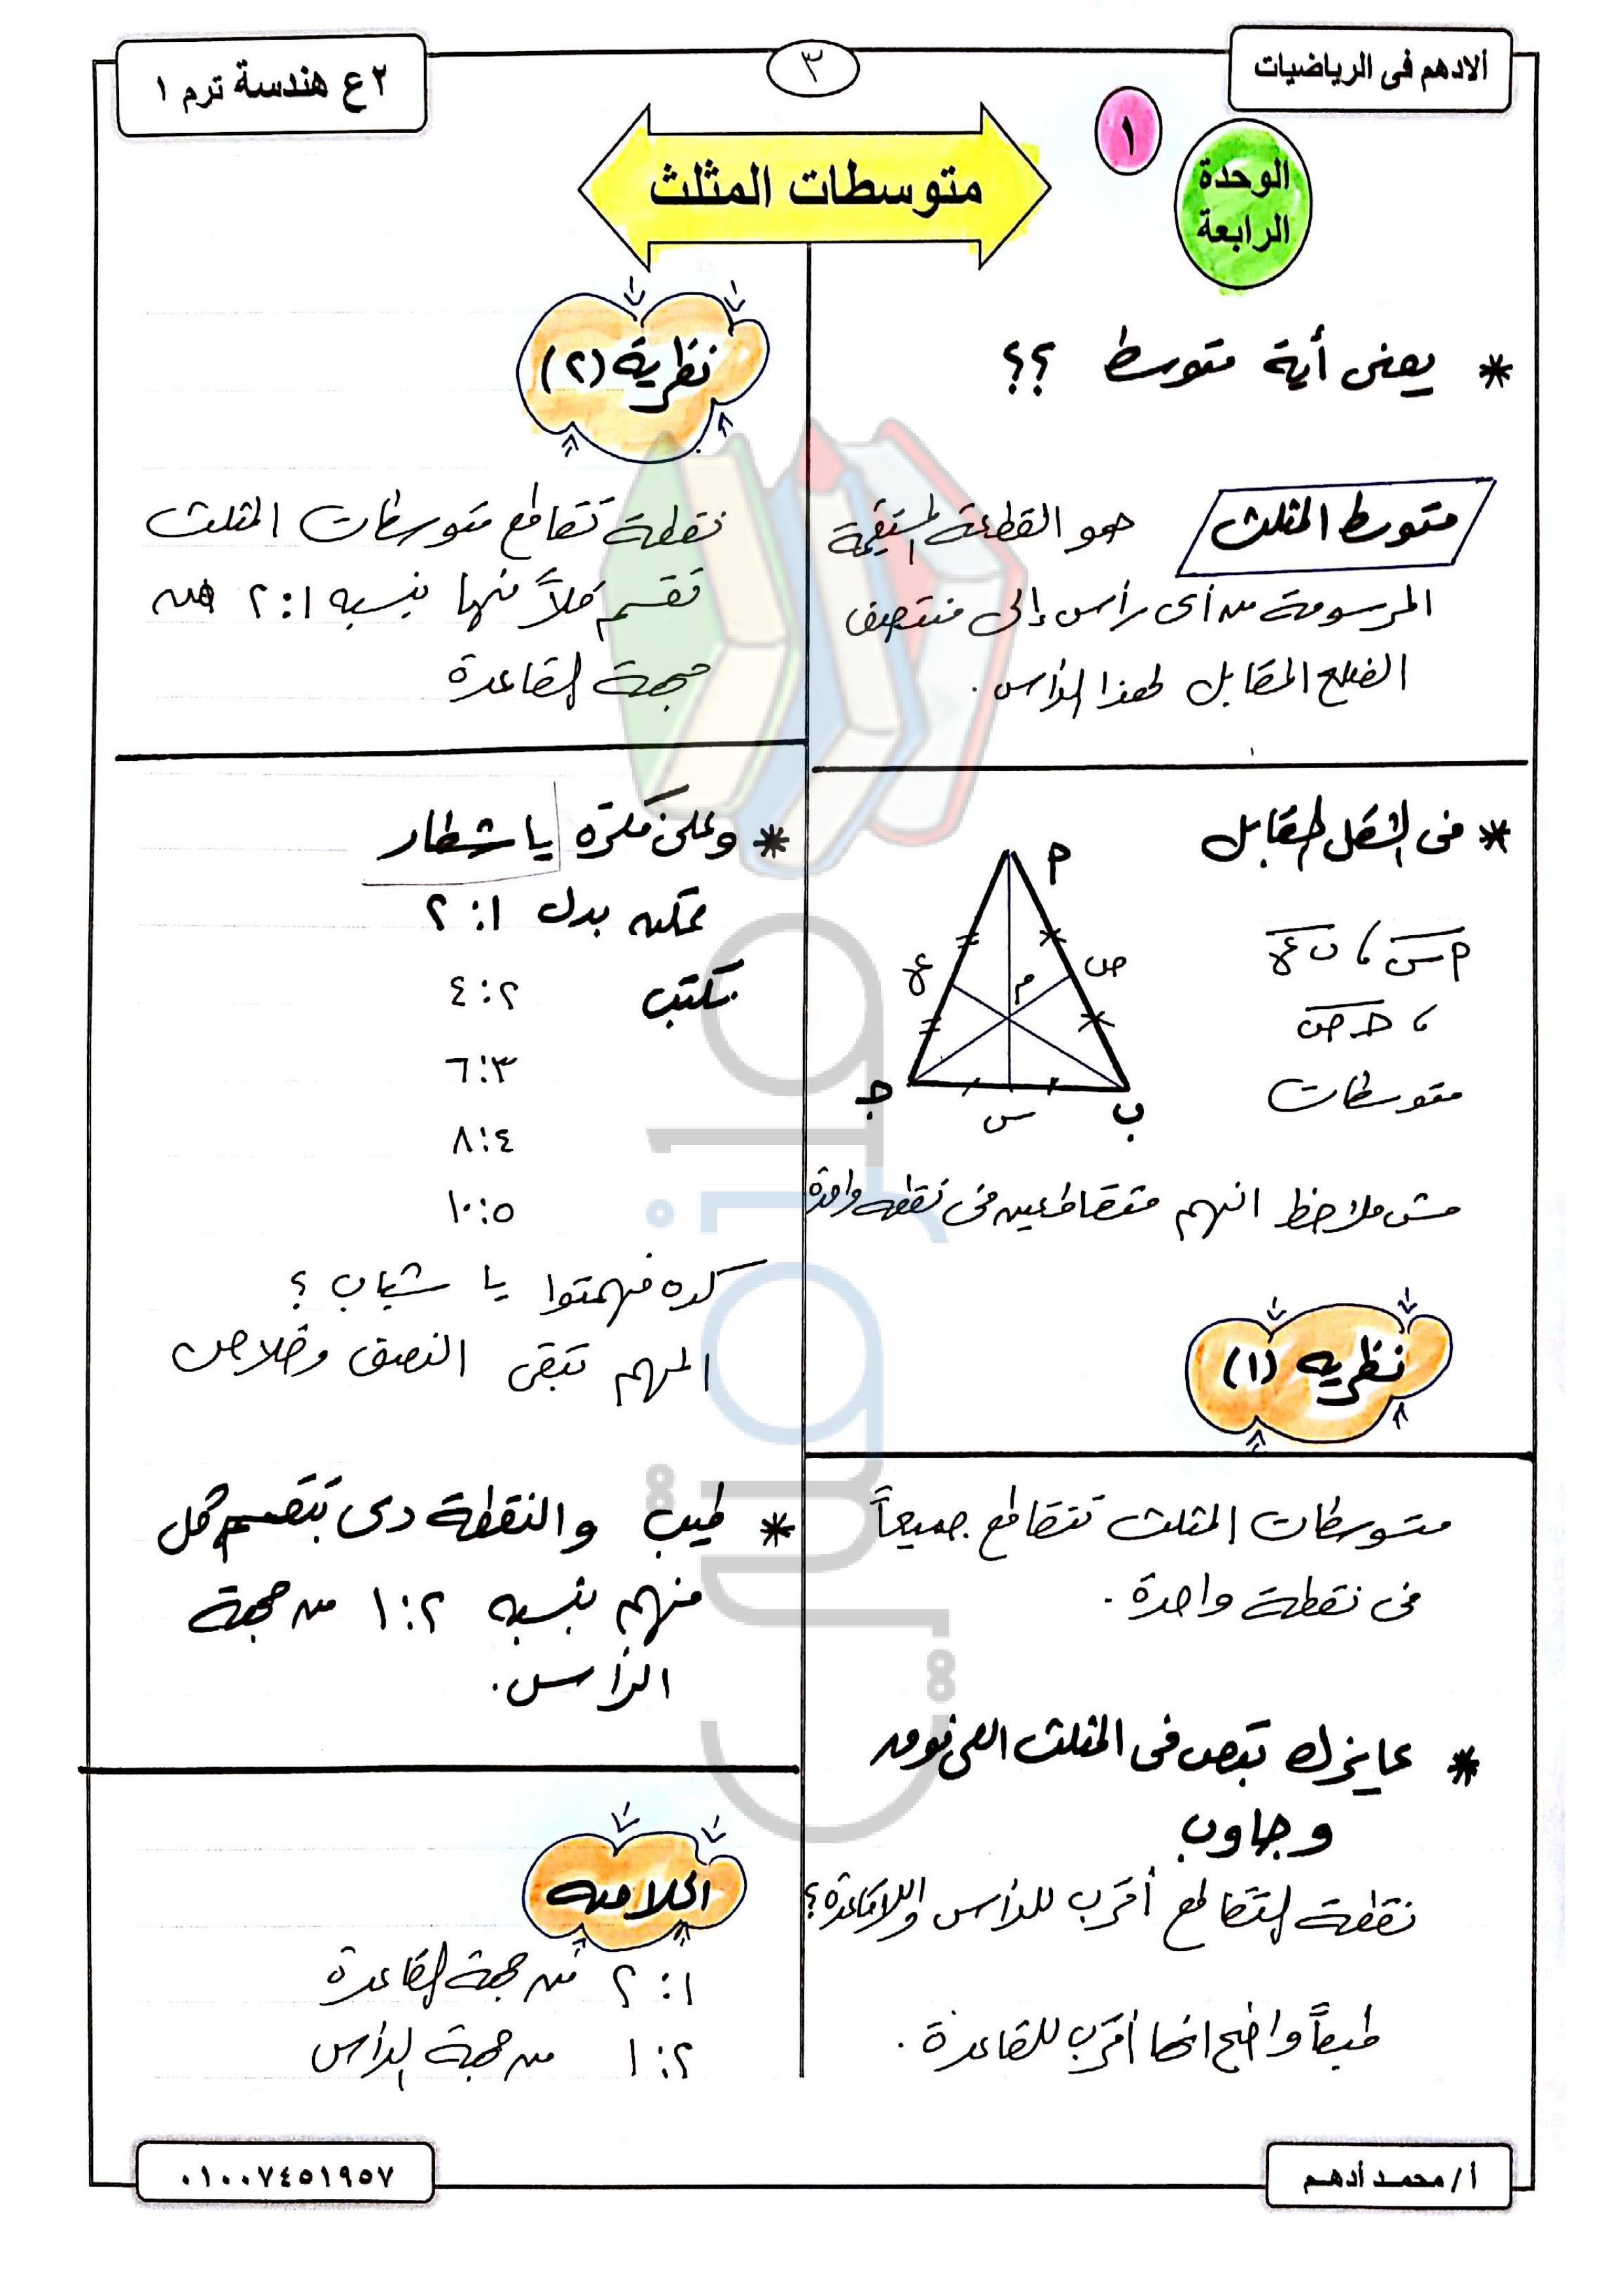 الادهم فى الرياضيات
٣
٢ع هندسة ترم ١
١
الوحدة
الرابعة
متوسطات المثلث
* يعنى أية متوسط ؟؟
متوسط المثلث هو القطعة المستقيمة
المرسومة من أى رأس إلى منتصف
الضلع المقابل لهذا الرأس .
* فى الشكل المقابل
م
أ
ص
ع
ب
ج
س
أس ، ب ع
، ج ص
متوسطات
مش ملاحظ انهم متقاطعين فى نقطه واحدة
نظريه (١)
متوسطات المثلث تتقاطع جميعاً
فى نقطة واحدة .
* عايزك تبص فى المثلث اللى فوق
وجاوب
نقطة التقاطع أقرب للرأس وللا القاعدة ؟
طبعاً واضح انها أقرب للقاعدة .
نظرية (٢)
نقطة تقاطع متوسطات المثلث
تقسم كلاً منها بنسبه ١ : ٢ من
جهة القاعدة
* وعلى فكره يا شطار
ممكن بدل ١ : ٢
نكتب ٢ : ٤
٣ : ٦
٤ : ٨
٥ : ١٠
كده فهمتوا يا شباب ؟
المهم تبقى النصف وخلاص
* طيب والنقطة دى بتقسم كل
منهم بنسبه ٢ : ١ من جهة
الرأس .
الخلاصه
١ : ٢ من جهة القاعدة
٢ : ١ من جهة الرأس
أ / محمد أدهم
٠١٠٠٧٤٥١٩٥٧